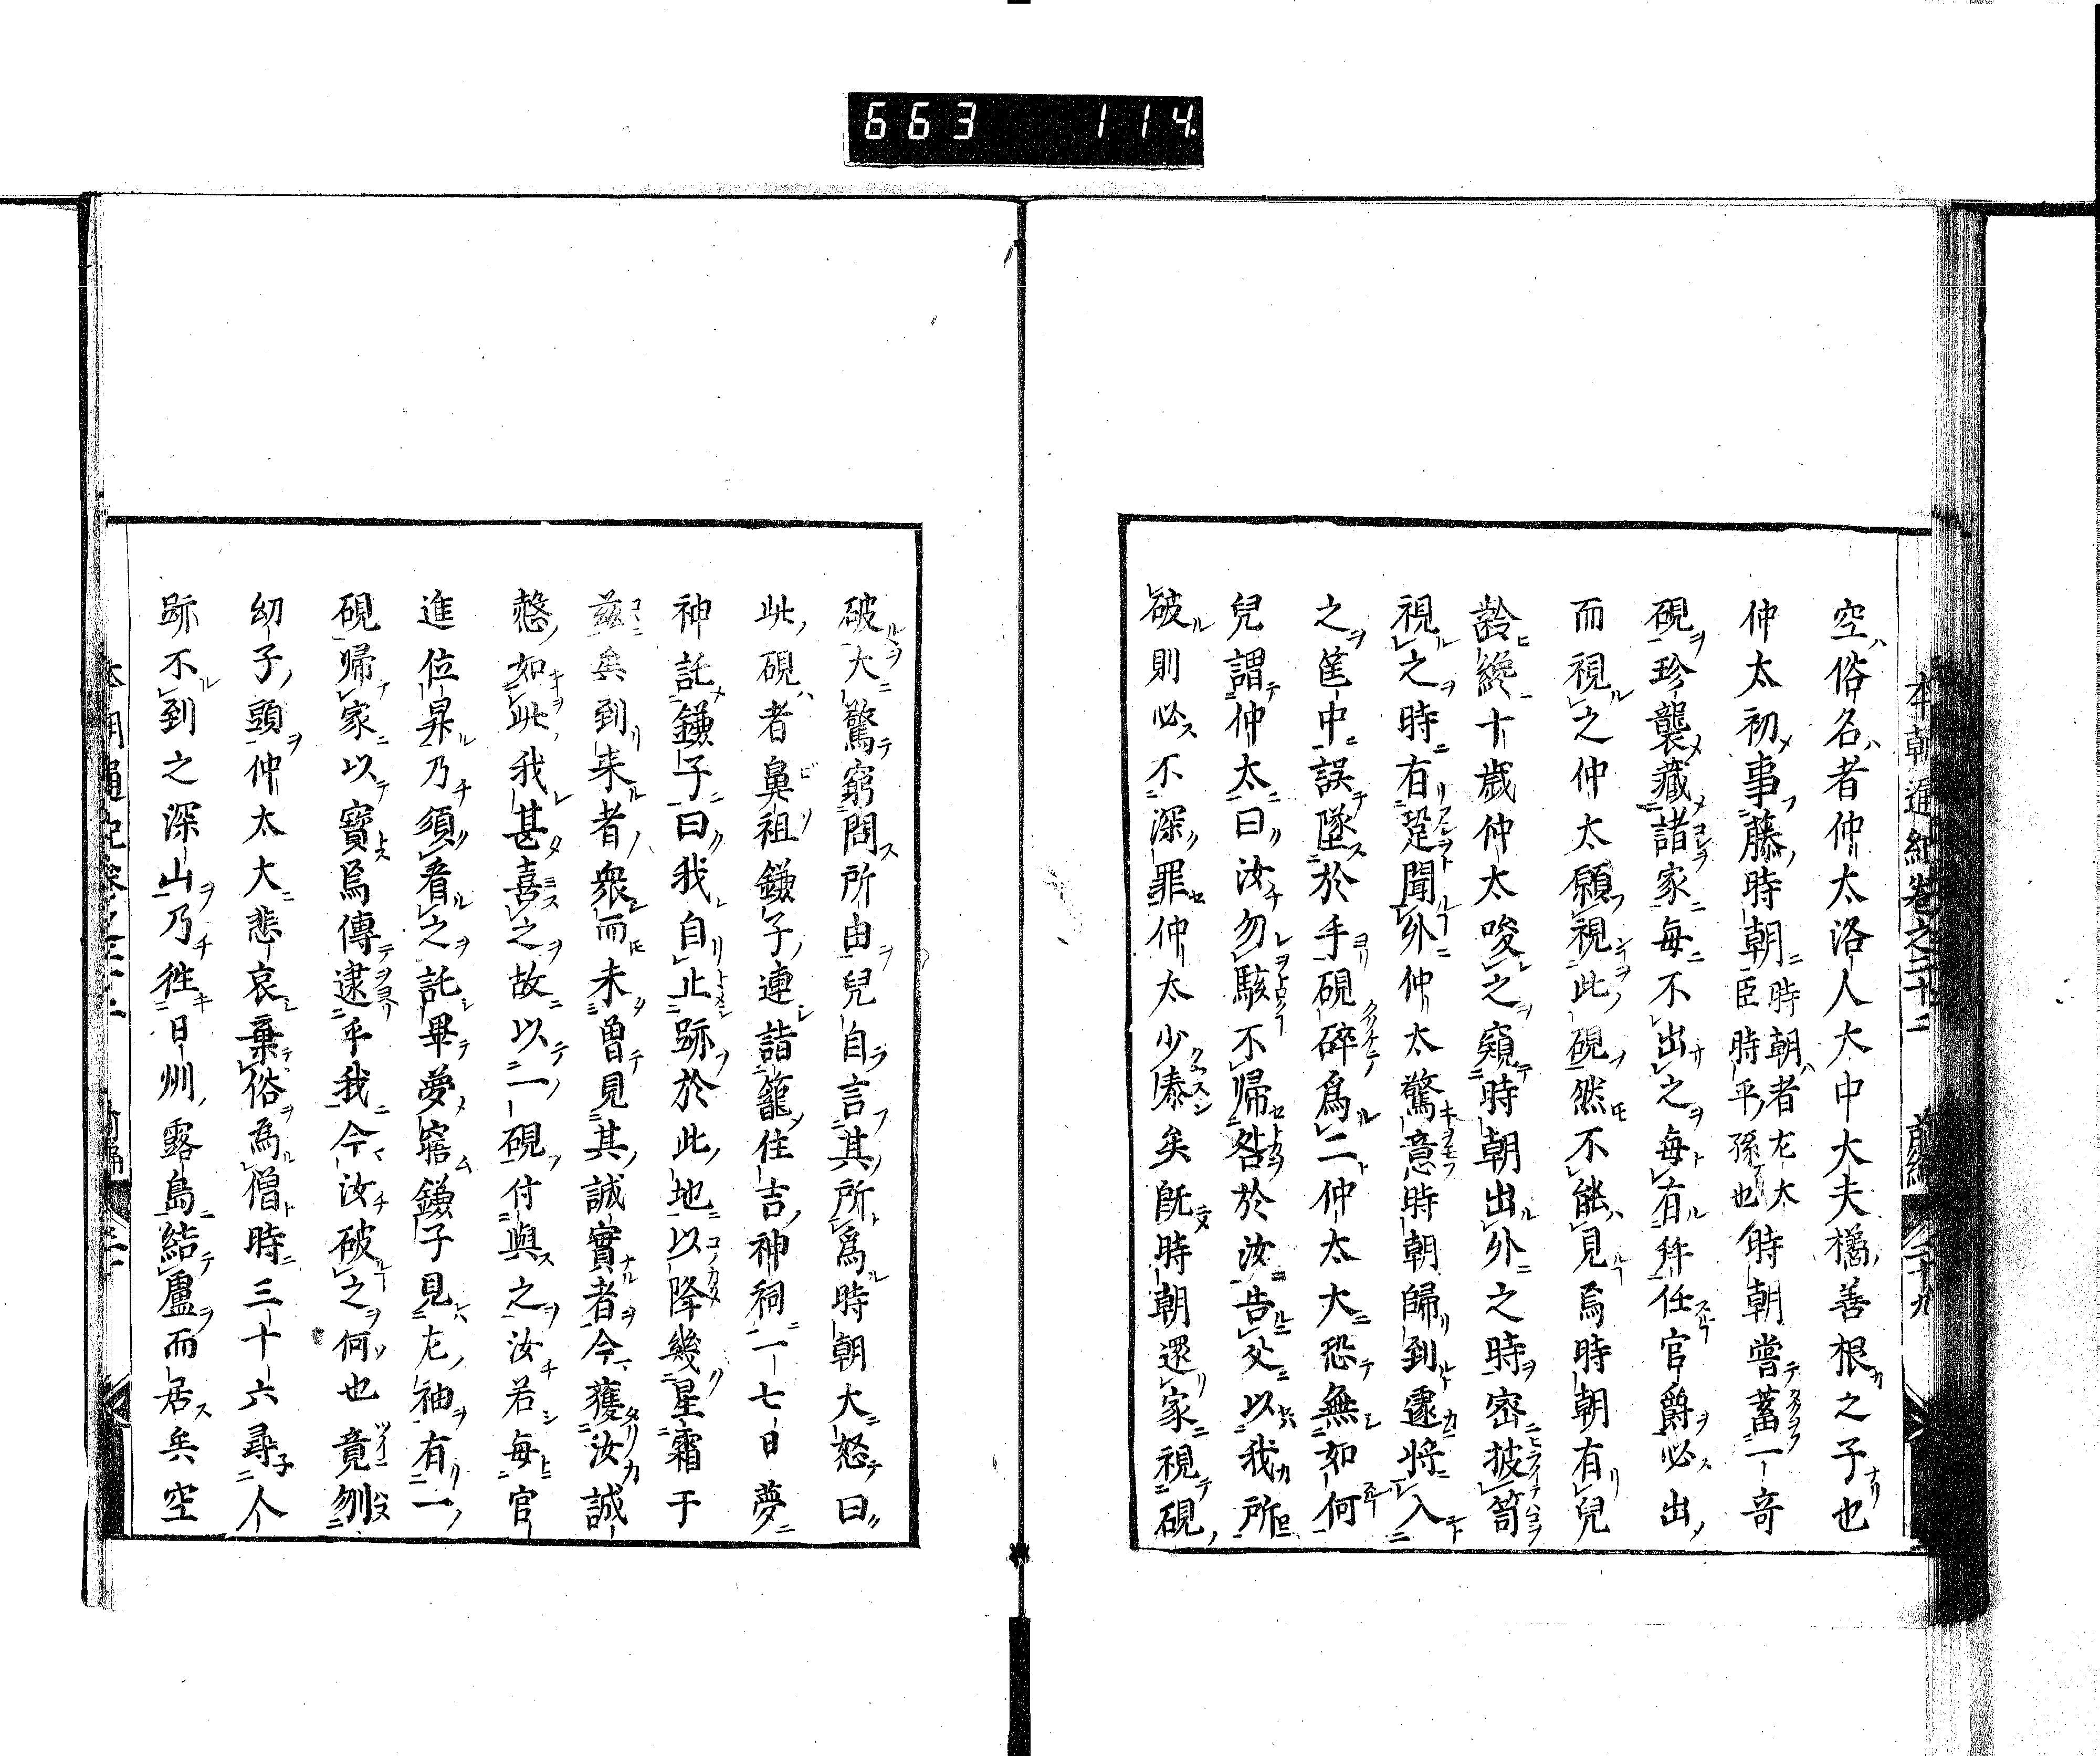 663 114.
本朝通紀卷之二十二 前編 二十九
空俗名者仲太洛人大中大夫橘善根之子也
仲太初事藤時朝時朝者左大臣時平孫也時朝嘗蓄一奇
硯珍襲藏諸家每不出之每有陞任官爵必出
而視之仲太願視此硯然不能見焉時朝有兒
齡纔十歲仲太唆之窺時朝出外之時密披笥
視之時有跫聞外仲太驚意時朝歸到遽將入
之筐中誤墜於手硯碎爲二仲太大恐無如何
兒謂仲太曰汝勿駭不歸咎於汝告父以我所
破則必不深罪仲太少愫矣既時朝還家視硯
破大驚窮問所由兒自言其所爲時朝大怒曰
此硯者鼻祖鎌子連詣籠住吉神祠一七日夢
神託鎌子曰我自止跡於此地以降幾星霜于
茲矣到来者衆而未曾見其誠實者今獲汝誠
愨如此我甚喜之故以一硯付與之汝若每官
進位昇乃須看之託畢夢寤鎌子見左袖有一
硯帰家以寶焉傳逮乎我今汝破之何也竟刎
幼子頭仲太大悲哀棄俗為僧時三十六尋人
跡不到之深山乃徃日州霧島結廬而居矣空